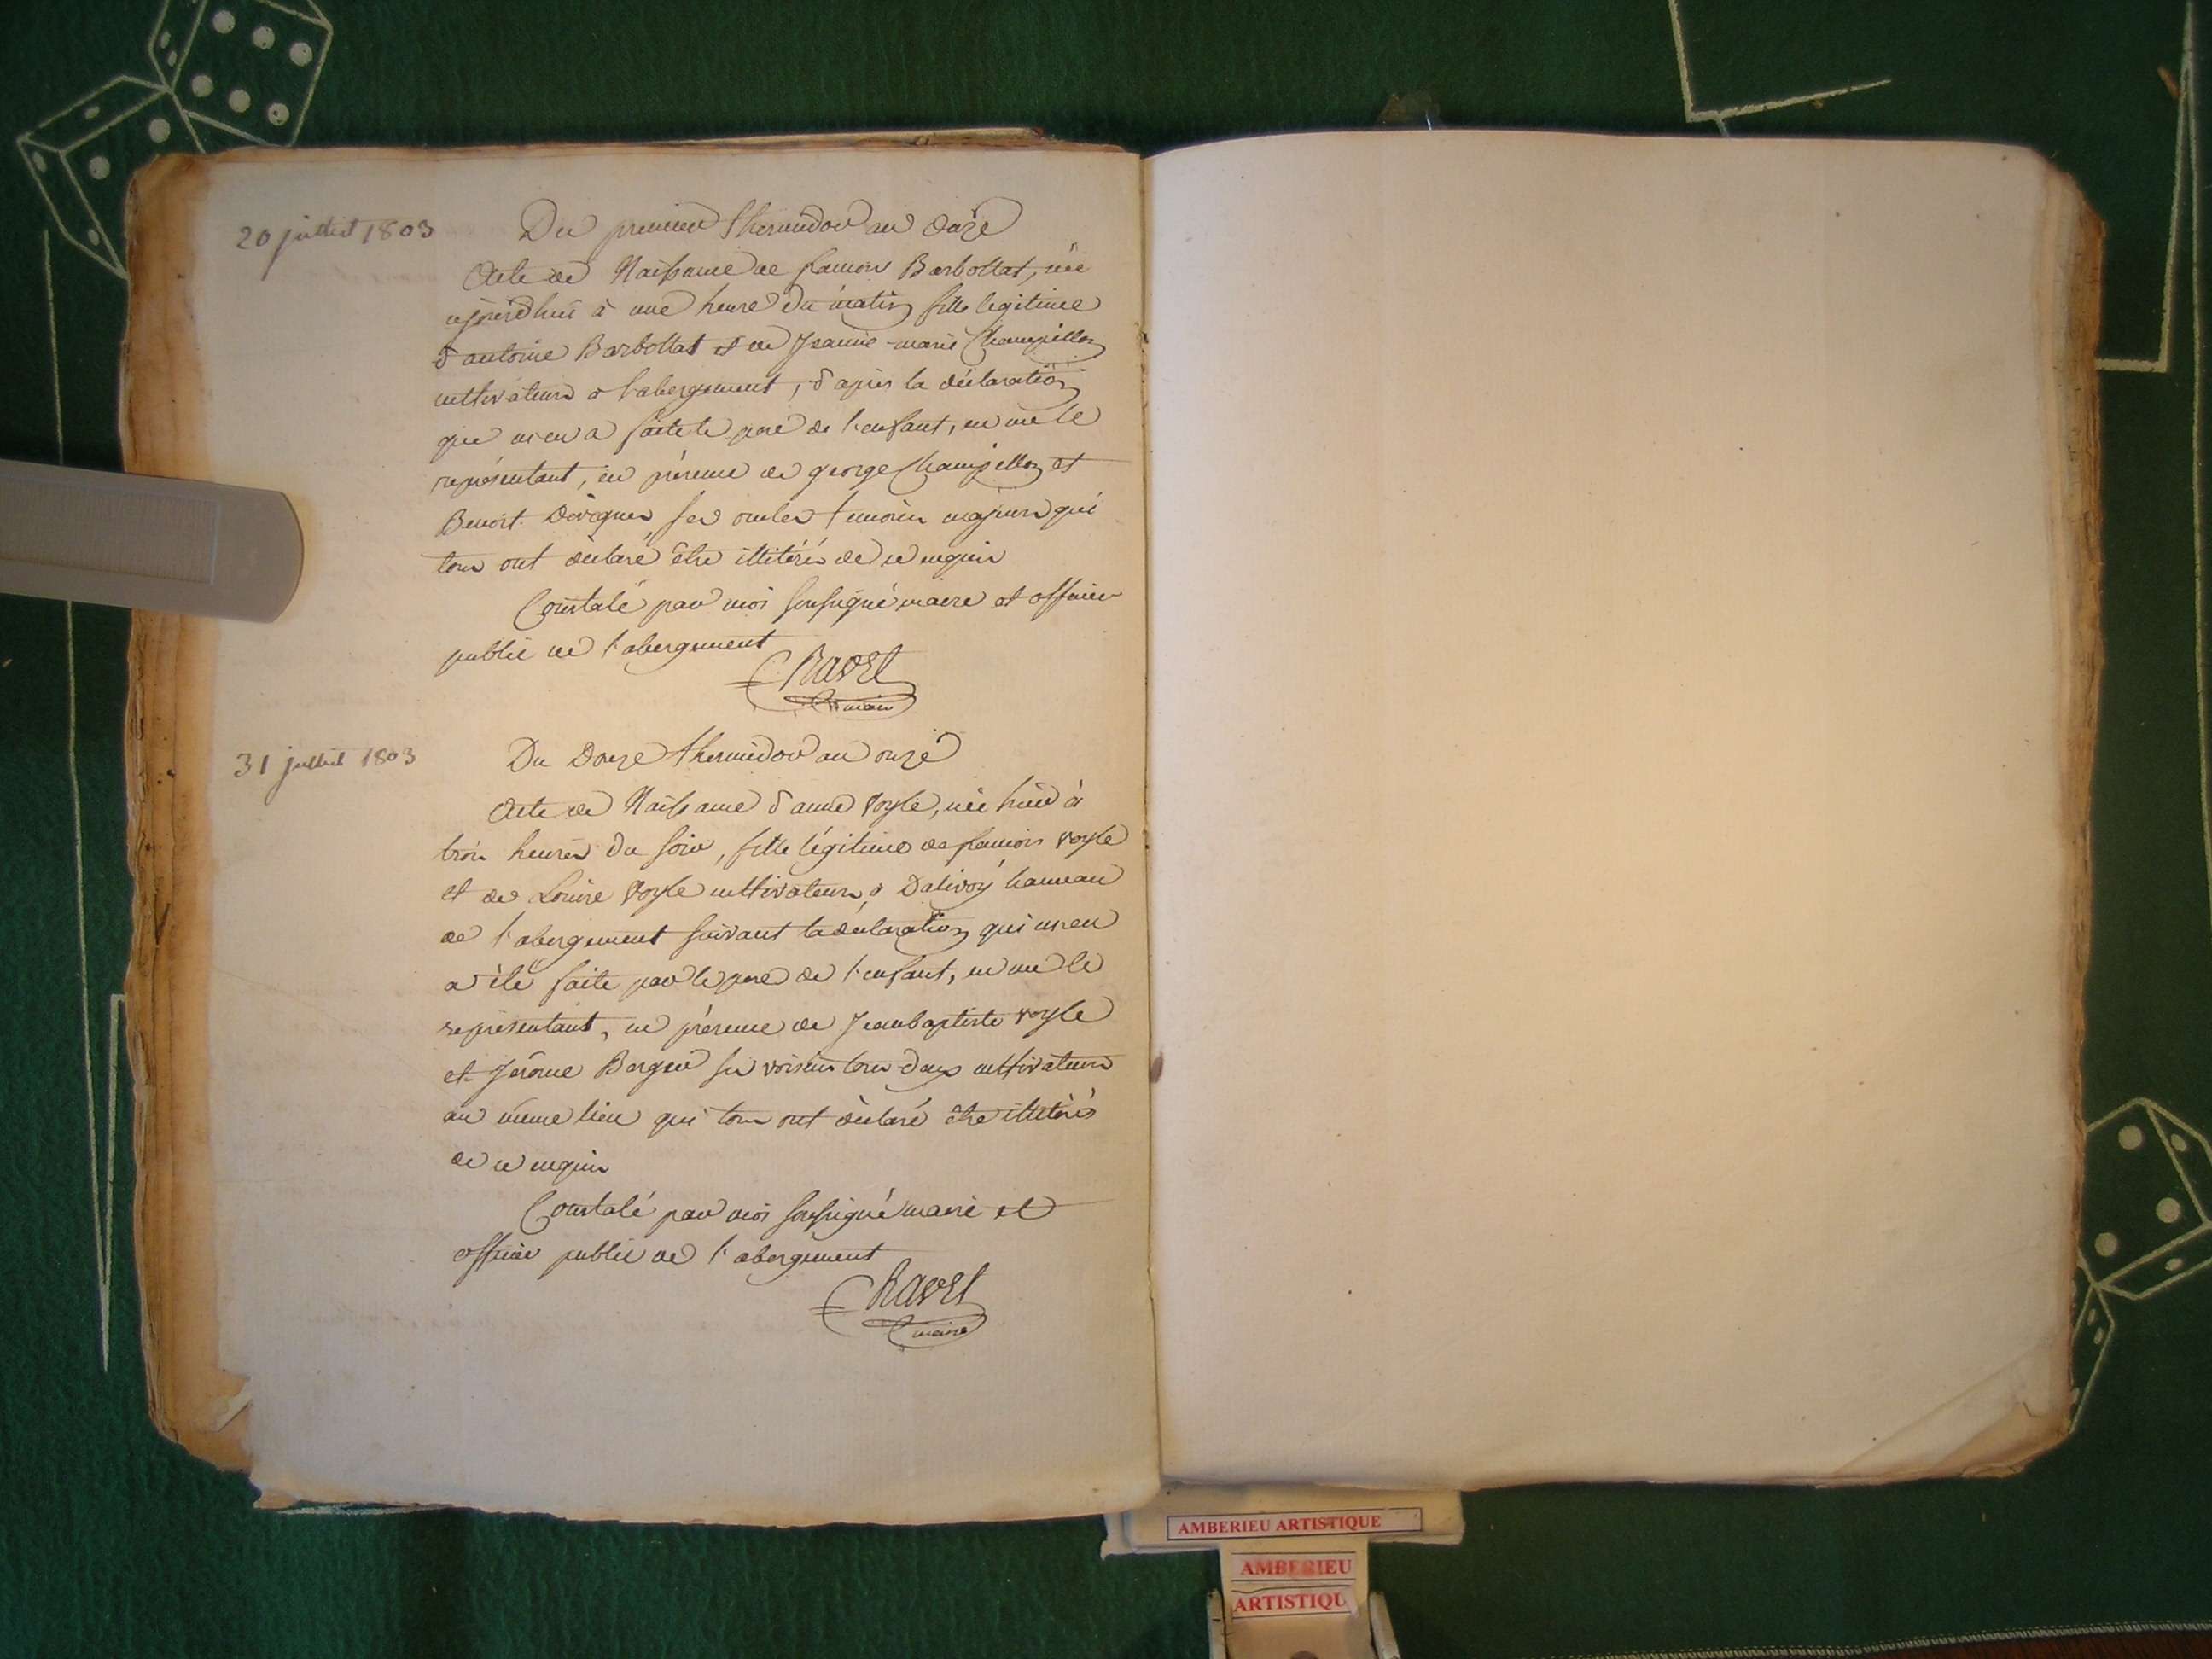 20 juillet 1803
Du premier thermidor an onze
Acte de Naissance de françois Barbollat, née
ajourdhui à une heure du matin fille legitime
d'antoine Barbollat et de Jeanne-marie Champillon
cultivateurs a l'abergement, d'après la déclaration
que m'en a faite le pere de l'enfant, en me le
représentant, en présence de george Champillon et
Benoit ses oncles temoins majeurs qui
tous ont déclaré être illitérés de ce enquis
Constalé par moi soussigné maire et officier
public de l'abergement
Chavet
maire
31 juillet 1803
Du Douze thermidor an onze
Acte de Naissance d'anne voyle, née hier à
trois heures du soir, fille légitime de francois voyle
et de Louise voyle cultivateurs à Dalivoy hameau
de l'abergement suivant la déclaration qui m'en
a été faite par le pere de l'enfant, en me le
représentant, en présence de Jean baptiste voyle
et Jérôme Berger ses voisins tous deux cultivateurs
au même lieu qui tous ont déclaré être illitérés
de ce enquis
Constalé par moi soussigné maire et
officier public de l'abergement
Chavet
maire
AMBERIEU ARTISTIQUE
AMBERIEU
ARTISTIQU